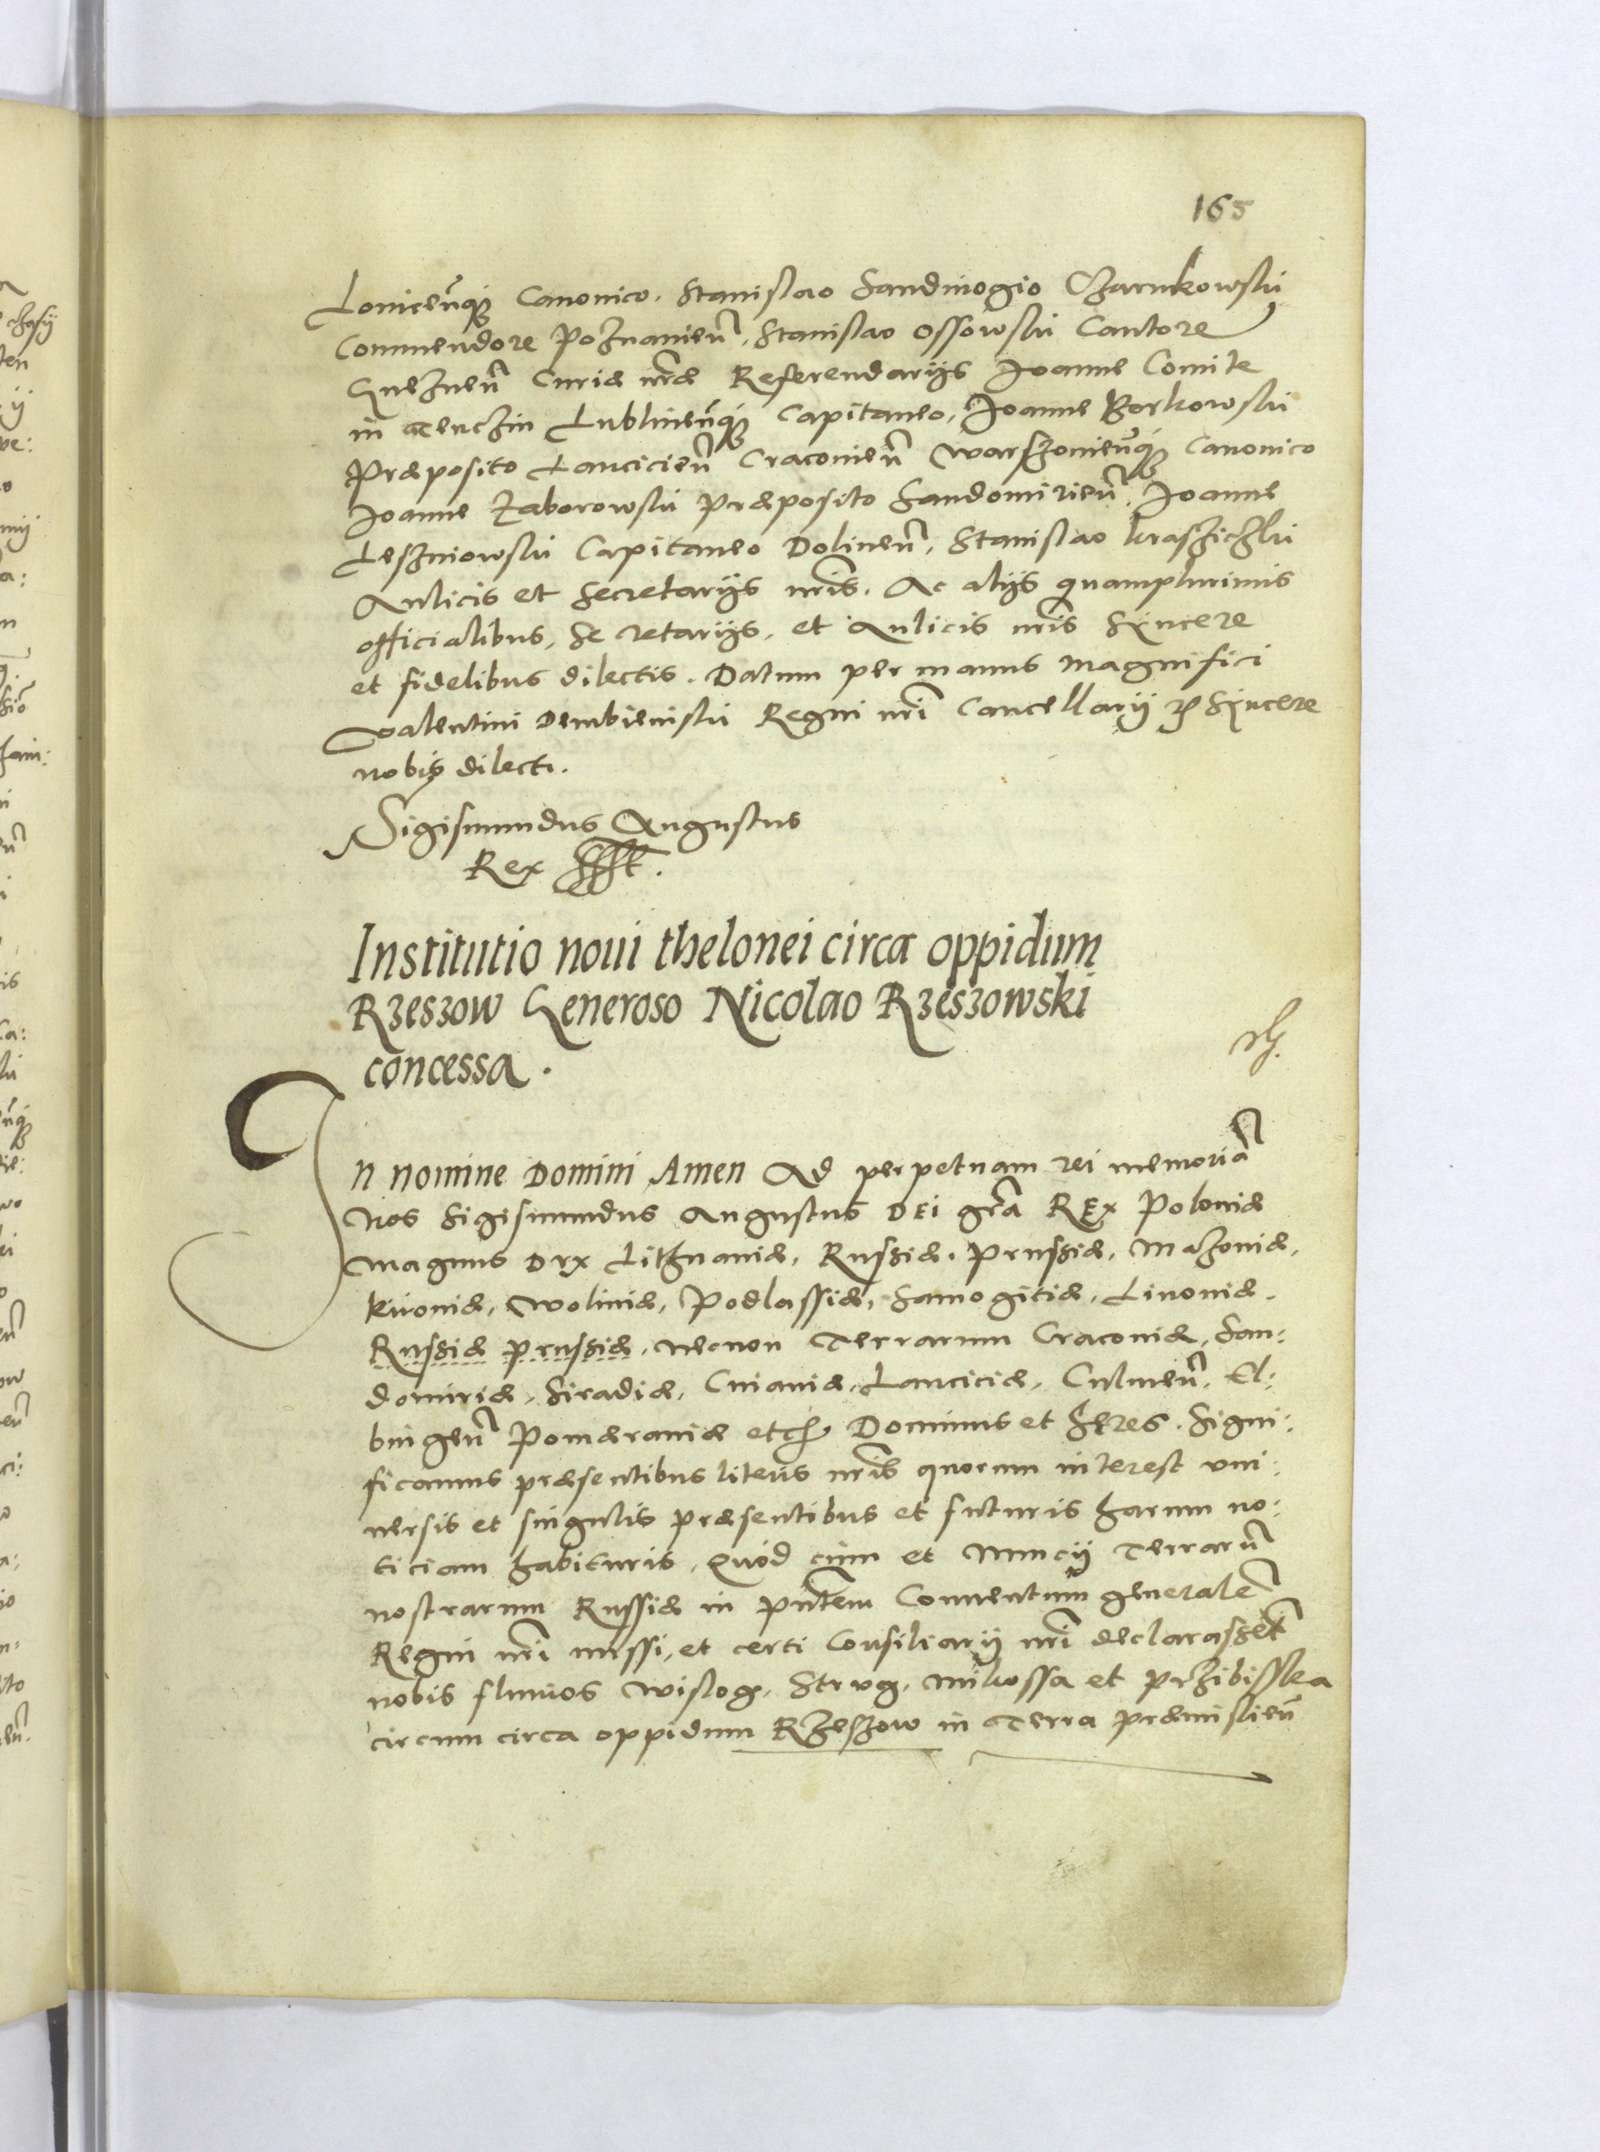 165
Lonicieñqʒ Canonico, Stanislao Sandiuogio Czarnkowski
Commendore Poznanieñ, Stanislao Ossowski Cantore
Gnezneñ Curiæ nr̃æ Referendarijs Joanne Comite
in Tenczin Lublineñqʒ Capitaneo, Joanne Borkowski
Præposito Lancicieñ Cracouieñ Warszouieñqʒ Canonico
Joanne Zaborowski Præposito Sandomirieñ, Joanne
Leszniowski Capitaneo Dolineñ, Stanislao Kraszičzki
Aulicis et Secretarijs nr̃is, Ac alijs quamplurimis
officialibus, Se retarijs, et Aulicis nr̃is Syncere
et fidelibus dilectis. Datum per manus Magnifici
Valentini Dembienski Regni nr̃i Cancellarij Syncere
nobis dilecti.
Sigismundus Augustus
Rex
Institutio noui thelonei circa oppidum
Rzeszow Generoso Nicolao Rzeszowski
concessa.
In nomine Domini Amen Ad perpetuam rei memoriã
Nos Sigismundus Augustus DEi gr̃a REx Poloniæ
Magnus Dux Lithuaniæ, Russiæ, Prussiæ, Mazouiæ,
Kiiouiæ, Woliniæ, Podlassiæ, Samogitiæ, Liuoniæ,
Russiæ Prussiæ, necnon Terrarum Cracouiæ, San:
domiriæ, Siradiæ, Cuiauiæ, Lanciciæ, Culmeñ, El:
bingeñ Pomæraniæ etc Dominus et Hæres. Signi:
ficamus præsentibus literis nr̃is quorum interest vni:
uersis et singulis præsentibus et futuris harum no:
ticiam habituris, Quòd cùm et Nuncij Terrarũ
nostrarum Russiæ in pñtem Conuentum generalẽ
Regni nr̃i missi, et certi Consiliarij nr̃i declarassẽt
nobis fluuios Wislog, Strug, Mikossa et Przibisska
circum circa oppidum Rzeszow in Terra Præmislieñ